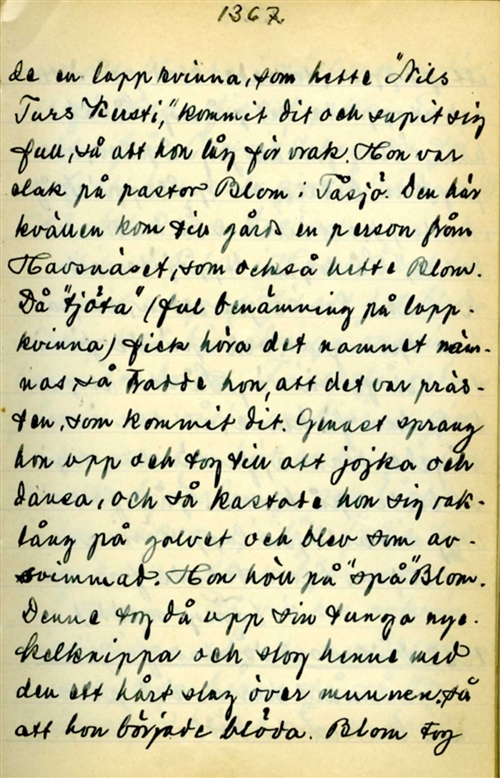 1367
de en lappkvinna, som hette "Nils
Turs Kersti," kommit dit och supit sig
full, så att hon låg för vrak. Hon var
elak på pastor Blom i Tåsjö. Den här
kvällen kom till gårds en person från
Havsnäset, som också hette Blom.
Då "tjöta" (ful benämning på lapp-
kvinna) fick höra det namnet näm-
nas så trodde hon, att det var präs-
ten, som kommit dit. Genast sprang
hon upp och tog till att jojka och
dansa, och så kastade hon sig rak-
lång på golvet och blev som av-
svimmad. Hon höll på "spå" Blom.
Denne tog då upp sin tunga nyc-
kelknippa och slog henne med
den ett hårt slag över munnen, så
att hon började blöda. Blom tog